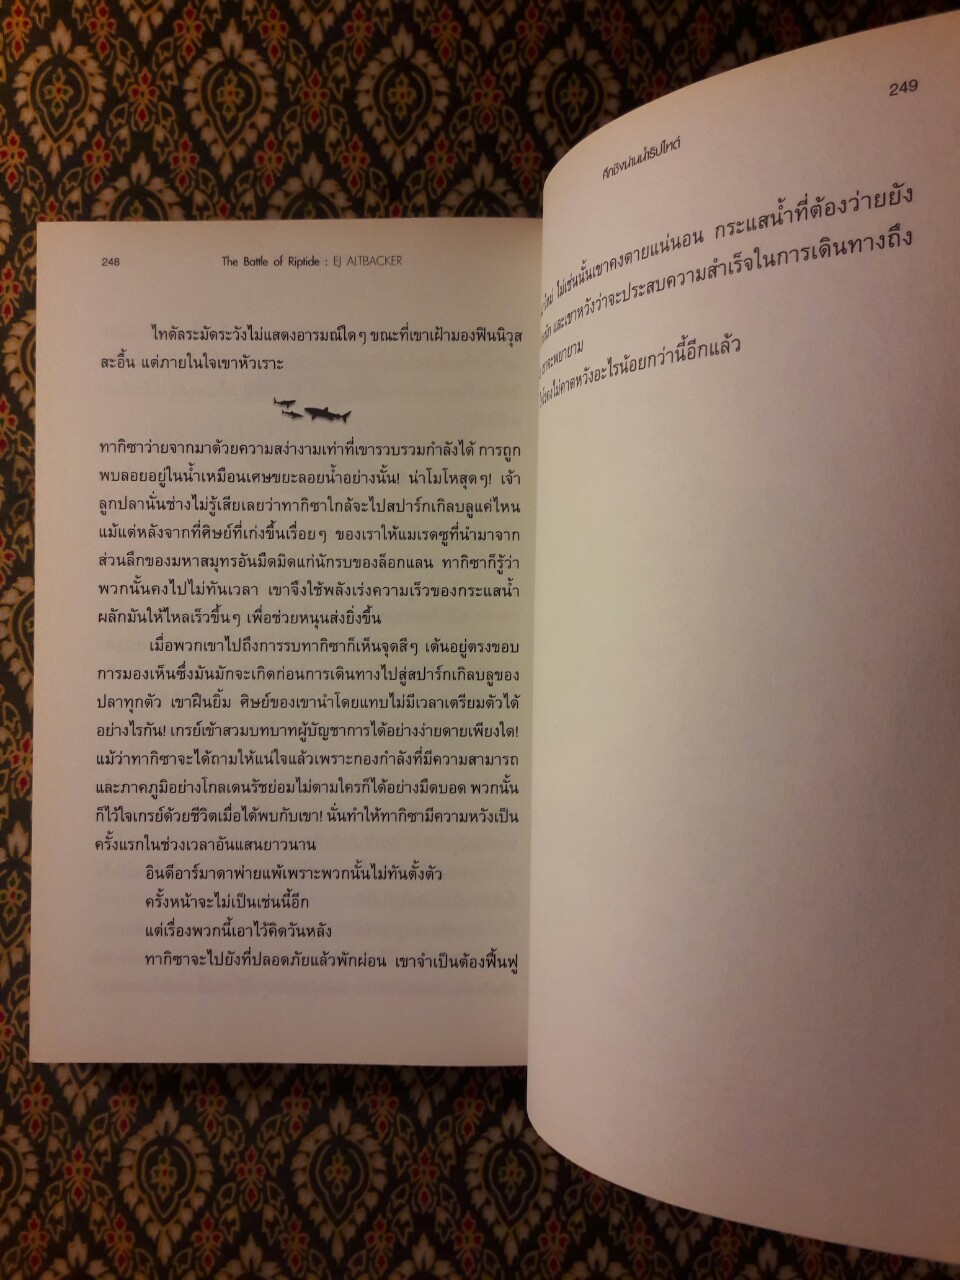 248
The Battle of Riptide : EJ ALTBACKER
ไทดัลระมัดระวังไม่แสดงอารมณ์ใดๆ ขณะที่เขาเฝ้ามองฟินนิวุส
สะอื้น แต่ภายในใจเขาหัวเราะ
ทากิซาว่ายจากมาด้วยความสง่างามเท่าที่เขารวบรวมกำลังได้ การถูก
พบลอยอยู่ในน้ำเหมือนเศษขยะลอยน้ำอย่างนั้น! น่าโมโหสุดๆ! เจ้า
ลูกปลานั่นช่างไม่รู้เสียเลยว่าทากิซาใกล้จะไปสปาร์กเกิลบลูแค่ไหน
แม้แต่หลังจากที่ศิษย์ที่เก่งขึ้นเรื่อยๆ ของเราให้แมเรดซูที่นำมาจาก
ส่วนลึกของมหาสมุทรอันมืดมิดแก่นักรบของล็อกแลน ทากิซาก็รู้ว่า
พวกนั้นคงไปไม่ทันเวลา เขาจึงใช้พลังเร่งความเร็วของกระแสน้ำ
ผลักมันให้ไหลเร็วขึ้นๆ เพื่อช่วยหนุนส่งยิ่งขึ้น
เมื่อพวกเขาไปถึงการรบทากิซาก็เห็นจุดสีๆ เต้นอยู่ตรงขอบ
การมองเห็นซึ่งมันมักจะเกิดก่อนการเดินทางไปสู่สปาร์กเกิลบลูของ
ปลาทุกตัว เขาฝืนยิ้ม ศิษย์ของเขานำโดยแทบไม่มีเวลาเตรียมตัวได้
อย่างไรกัน! เกรย์เข้าสวมบทบาทผู้บัญชาการได้อย่างง่ายดายเพียงใด!
แม้ว่าทากิซาจะได้ถามให้แน่ใจแล้วเพราะกองกำลังที่มีความสามารถ
และภาคภูมิอย่างโกลเดนรัชย่อมไม่ตามใครก็ได้อย่างมืดบอด พวกนั้น
ก็ไว้ใจเกรย์ด้วยชีวิตเมื่อได้พบกับเขา! นั่นทำให้ทากิซามีความหวังเป็น
ครั้งแรกในช่วงเวลาอันแสนยาวนาน
อินดีอาร์มาดาพ่ายแพ้เพราะพวกนั้นไม่ทันตั้งตัว
ครั้งหน้าจะไม่เป็นเช่นนี้อีก
แต่เรื่องพวกนี้เอาไว้คิดวันหลัง
ทากิซาจะไปยังที่ปลอดภัยแล้วพักผ่อน เขาจำเป็นต้องฟื้นฟู
249
ศึกชิงน่านน้ำริปไทด์
ไม่เช่นนั้นเขาคงตายแน่นอน กระแสน้ำที่ต้องว่ายยัง
และเขาหวังว่าจะประสบความสำเร็จในการเดินทางถึง
เขาจะพยายาม
ไม่คาดหวังอะไรน้อยกว่านี้อีกแล้ว